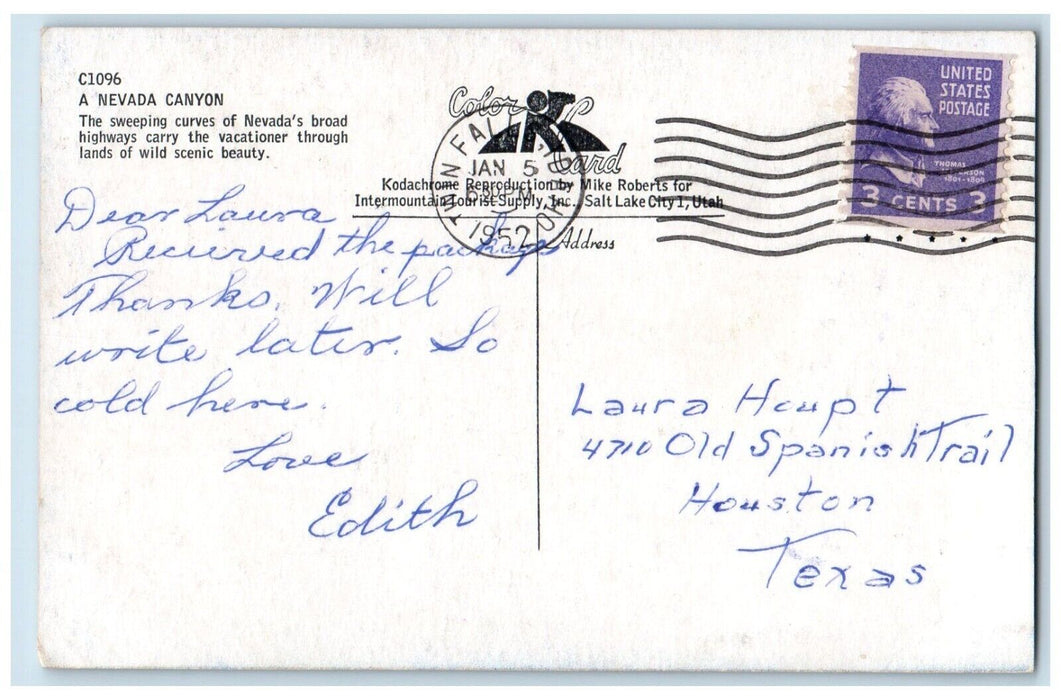 C1096
A NEVADA CANYON
The sweeping curves of Nevada's broad
highways carry the vacationer through
lands of wild scenic beauty.
Color Card
Kodachrome Reproduction by Mike Roberts for
Intermountain Tourist Supply, Inc., Salt Lake City 1, Utah
Address
TWIN FALLS, IDAHO
JAN 5
PM
1952
UNITED
STATES
POSTAGE
THOMAS
JEFFERSON
1801-1809
3 CENTS 3
Dear Laura
Recieved the package
Thanks. Will
write later. So
cold here.
Love
Edith
Laura Houpt
4710 Old Spanish Trail
Houston
Texas